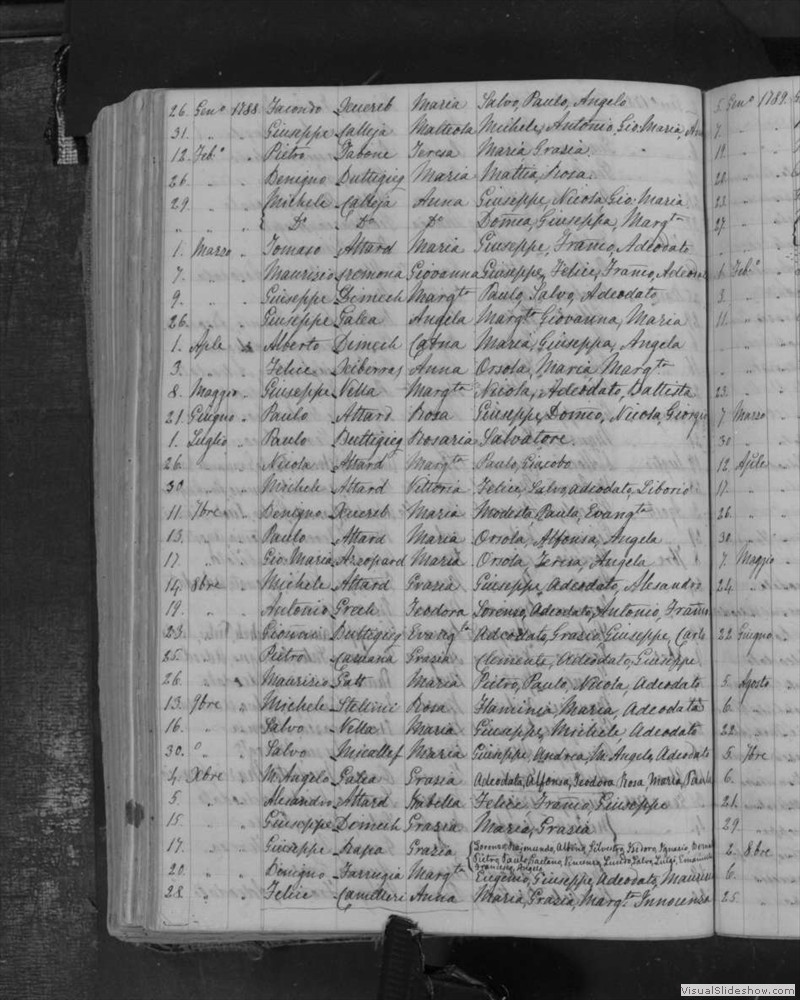 26. Gen° 1788 Facondo Xuereb Maria Salvo, Paulo, Angelo
31. " " Giuseppe Calleja Matteola Michele, Antonio, Gio: Maria,
12. Feb° " Pietro Tabone Teresa Maria Grazia.
26. " " Benigno Buttigieg Maria Mattia, Rosa.
29. " " Michele Calleja Anna Giuseppe, Nicola, Gio: Maria
" " " D° D° D° Dom.ca, Giuseppa, Marg.ta
1. Marzo " Tomaso Attard Maria Giuseppe, Franco, Adeodato
7. " " Maurizio Cremona Giovanna Giuseppe, Felice, Franco, Adeodato
9. " " Giuseppe Dimech Marg.ta Paulo, Salvo, Adeodato
26. " " Giuseppe Galea Angela Marg.ta Giovanna, Maria
1. Aple " Alberto Dimech Cat.na Maria, Giuseppa, Angela
3. " " Felice Xeiberras Anna Orsola, Maria Marg.ta
8. Maggio " Giuseppe Vella Marg.ta Nicola, Adeodato, Battista
21. Giugno " Paulo Attard Rosa Giuseppe, Domco, Nicola, Georgio
1. Luglio " Paulo Buttigieg Rosaria Salvatore.
26. " " Nicola Attard Marg.ta Paulo, Giacobo
30. " " Michele Attard Vittoria Felice, Salvo, Adeodato, Liborio
11. 7bre " Benigno Xuereb Maria Modesta, Paula, Evang.ta
13. " " Paulo Attard Maria Orsola, Alfonsa, Angela
17. " " Gio: Maria Azzopard Maria Orsola, Teresa, Angela
14. 8bre " Michele Attard Grazia Giuseppe, Adeodato, Alesandro
19. " " Antonio Grech Teodora Lorenzo, Adeodato, Antonio, Franco
23. " " Buttigieg Evang.ta Adeodato, Grazio, Giuseppe, Carlo
25. " " Pietro Camana Grazia Clemente, Adeodato, Giuseppe
26 " " Maurizio Gatt Maria Pietro, Paulo, Nicola, Adeodato
13. 9bre " Michele Stellini Rosa Flaminia, Maria, Adeodata
16. " " Salvo Vella Maria Giuseppe, Michele Adeodato
30. " " Salvo Micallef Maria Giuseppe, Andrea, M. Angelo, Adeodato
4. Xbre " M. Angelo Galea Grazia Adeodata, Alfonsa, Teodora, Rosa, Maria, Paula
5. " " Alesandro Attard Isabella Felice, Franco, Giuseppe
15. " " Giuseppe Domech Grazia Maria, Grazia
17. " " Giuseppe Grazia Raimundo, Albino, Silvestro, Isidoro, Ignazio,
Pietro, Paulo, Gaetano, Vincenzo, Salvo, Luigi, Emanuele
Francesco, Angelo
20. " " Benigno Farrugia Marg.ta Eugenio, Giuseppe, Adeodato, Maurizio
28. " " Felice Camilleri Anna Maria, Grazia, Marg.ta Innocenza
5. Gen° 1789.
7. " "
19. " "
20. " "
23. " "
27. " "
1. Feb° "
3. " "
11. " "
23. " "
7 Marzo "
30 " "
12 Aple "
17. " "
26. " "
30 " "
7. Maggio "
24. " "
22 Giugno "
5. Agosto "
6. " "
22. " "
5. 7bre "
6. " "
21. " "
29. " "
2. 8bre "
6. " "
25. " "
VisualSlideshow.com